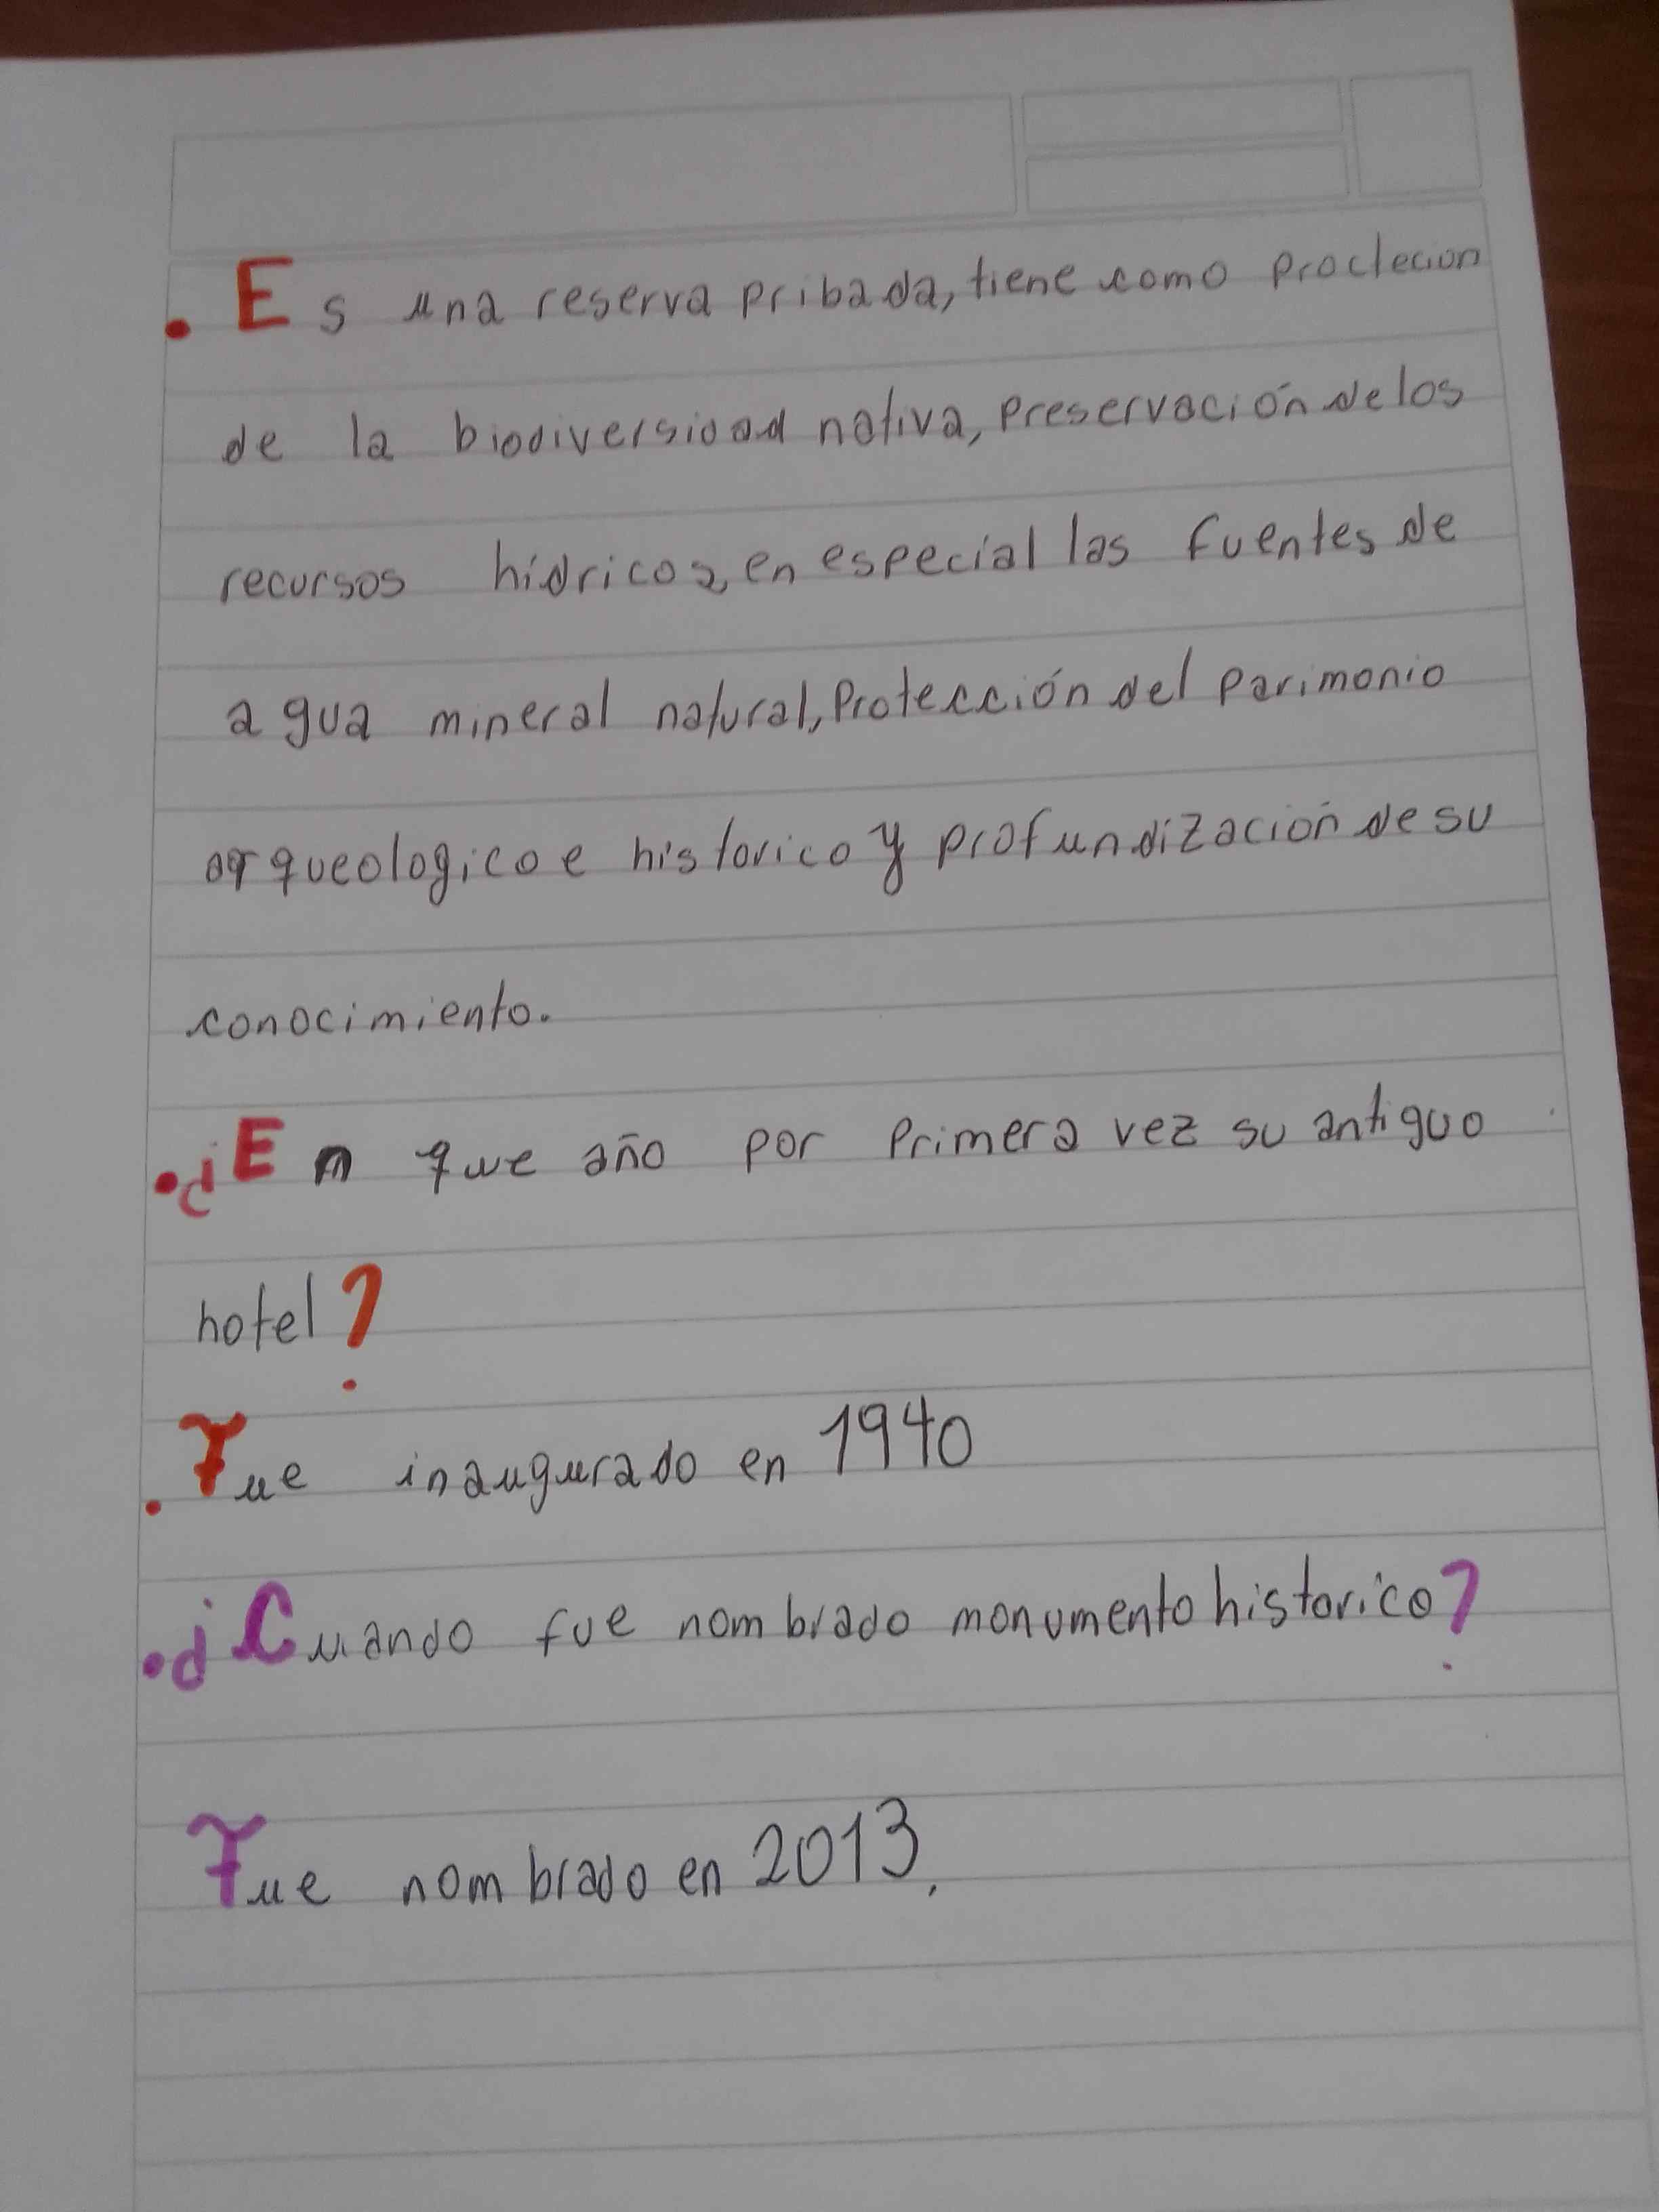 . Es una reserva pribada, tiene como proctecion
de la biodiversidad nativa, preservación de los
recursos hídricos, en especial las fuentes de
agua mineral natural, Protección del parimonio
arqueologico e historico y profundización de su
conocimiento.
. ¿En que año por primera vez su antiguo
hotel?
. Fue inaugurado en 1940
. ¿Cuando fue nombrado monumento historico?
Fue nombrado en 2013.